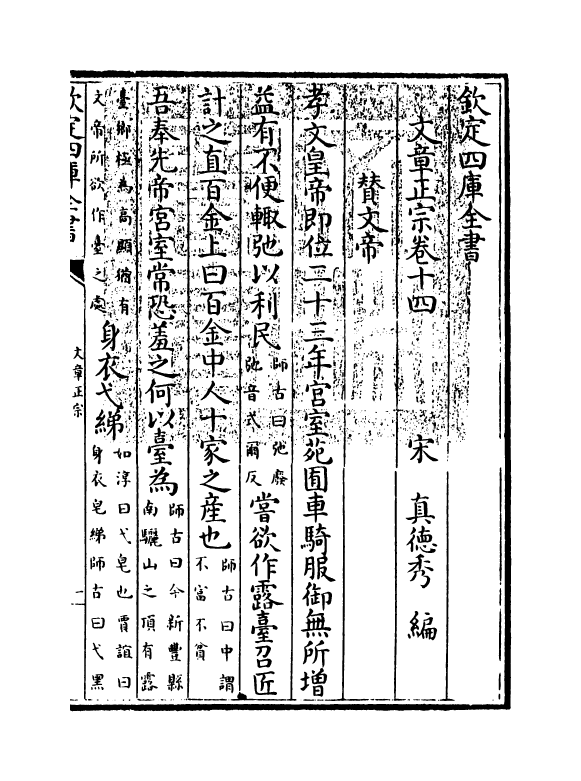 欽定四庫全書
文章正宗卷十四　宋　真德秀　編
賛文帝
孝文皇帝即位二十三年宫室苑囿車騎服御無所増
益有不便輙弛以利民師古曰弛廢弛音式爾反嘗欲作露臺召匠
計之直百金上曰百金中人十家之産也師古曰中謂不富不貧
吾奉先帝宫室常恐羞之何以臺為師古曰今新豐縣南驪山之頂有露
臺鄉極為髙顯猶有文帝所欲作臺之處身衣弋綈如淳曰弋皂也賈誼曰身衣皂綈師古曰弋黑
欽定四庫全書
文章正宗
一